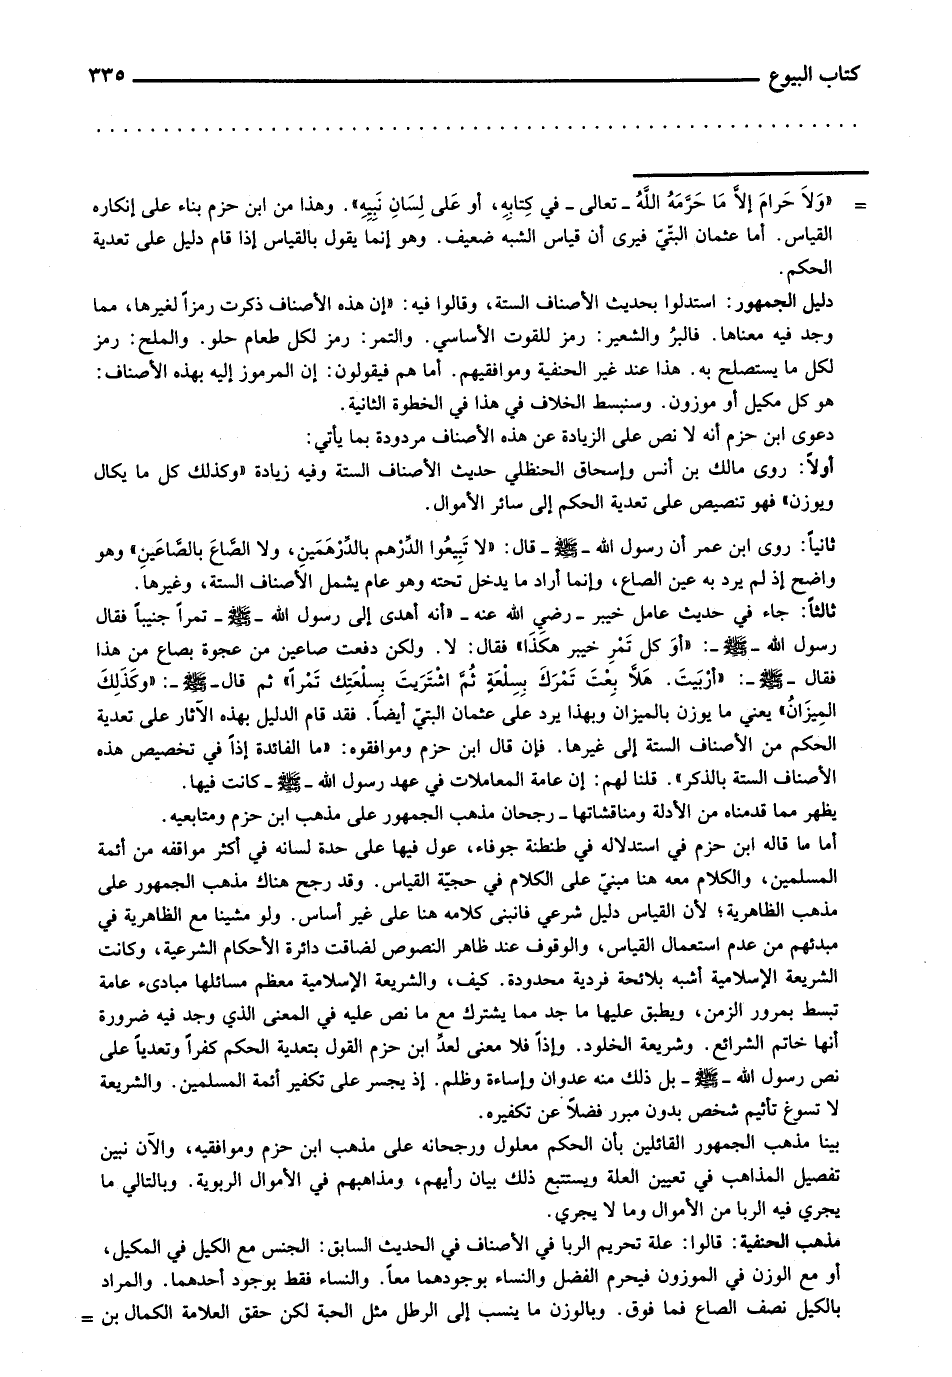 كتاب البيوع ٣٣٥
. . . . . . . . . . . . . . . . . . . . . . . . . . . . . . . . . . . . . . . . . . . . . . . . . . . . . . . .
= «وَلاَ حَرامَ إلاَّ مَا حَرَّمَهُ اللَّهُ ـ تعالى ـ في كِتابِهِ، أو عَلى لِسَانِ نَبِيِهِ». وهذا من ابن حزم بناء على إنكاره
القياس. أما عثمان البتّيّ فيرى أن قياس الشبه ضعيف. وهو إنما يقول بالقياس إذا قام دليل على تعدية
الحكم.
دليل الجمهور: استدلوا بحديث الأصناف الستة، وقالوا فيه: «إن هذه الأصناف ذكرت رمزاً لغيرها، مما
وجد فيه معناها. فالبرُ والشعير: رمز للقوت الأساسي. والتمر: رمز لكل طعام حلو. والملح: رمز
لكل ما يستصلح به. هذا عند غير الحنفية وموافقيهم. أما هم فيقولون: إن المرموز إليه بهذه الأصناف:
هو كل مكيل أو موزون. وسنبسط الخلاف في هذا في الخطوة الثانية.
دعوى ابن حزم أنه لا نص على الزيادة عن هذه الأصناف مردودة بما يأتي:
أولاً: روى مالك بن أنس وإسحاق الحنظلي حديث الأصناف الستة وفيه زيادة «وكذلك كل ما يكال
ويوزن» فهو تنصيص على تعدية الحكم إلى سائر الأموال.
ثانياً: روى ابن عمر أن رسول الله ـ ﷺ ـ قال: «لا تَبِيعُوا الدِّرْهم بالدِّرْهَمَينِ، ولا الصَّاعَ بالصَّاعَينِ» وهو
واضح إذ لم يرد به عين الصاع، وإنما أراد ما يدخل تحته وهو عام يشمل الأصناف الستة، وغيرها.
ثالثاً: جاء في حديث عامل خيبر ـ رضي الله عنه ـ «أنه أهدى إلى رسول الله ـ ﷺ ـ تمراً جنيباً فقال
رسول الله ـ ﷺ ـ: «أوَ كل تَمْرِ خيبر هكَذَا» فقال: لا. ولكن دفعت صاعين من عجوة بصاع من هذا
فقال ـ ﷺ ـ: «أرْبَيتَ. هَلاَّ بِعْتَ تَمْرَكَ بِسِلْعَةٍ ثُمَّ اشْتَريتَ بِسلْعَتِك تَمْراً» ثم قال ـ ﷺ ـ: «وكَذَلِكَ
المِيزَانُ» يعني ما يوزن بالميزان وبهذا يرد على عثمان البتيّ أيضاً. فقد قام الدليل بهذه الآثار على تعدية
الحكم من الأصناف الستة إلى غيرها. فإن قال ابن حزم وموافقوه: «ما الفائدة إذاً في تخصيص هذه
الأصناف الستة بالذكر». قلنا لهم: إن عامة المعاملات في عهد رسول الله ـ ﷺ ـ كانت فيها.
يظهر مما قدمناه من الأدلة ومناقشاتها ـ رجحان مذهب الجمهور على مذهب ابن حزم ومتابعيه.
أما ما قاله ابن حزم في استدلاله في طنطنة جوفاء، عول فيها على حدة لسانه في أكثر مواقفه من أئمة
المسلمين، والكلام معه هنا مبنيّ على الكلام في حجيّة القياس. وقد رجح هناك مذهب الجمهور على
مذهب الظاهرية؛ لأن القياس دليل شرعي فانبنى كلامه هنا على غير أساس. ولو مشينا مع الظاهرية في
مبدئهم من عدم استعمال القياس، والوقوف عند ظاهر النصوص لضاقت دائرة الأحكام الشرعية، وكانت
الشريعة الإسلامية أشبه بلائحة فردية محدودة. كيف، والشريعة الإسلامية معظم مسائلها مبادىء عامة
تبسط بمرور الزمن، ويطبق عليها ما جد مما يشترك مع ما نص عليه في المعنى الذي وجد فيه ضرورة
أنها خاتم الشرائع. وشريعة الخلود. وإذاً فلا معنى لعدِّ ابن حزم القول بتعدية الحكم كفراً وتعدياً على
نص رسول الله ـ ﷺ ـ بل ذلك منه عدوان وإساءة وظلم. إذ يجسر على تكفير أئمة المسلمين. والشريعة
لا تسوغ تأثيم شخص بدون مبرر فضلاً عن تكفيره.
بينا مذهب الجمهور القائلين بأن الحكم معلول ورجحانه على مذهب ابن حزم وموافقيه، والآن نبين
تفصيل المذاهب في تعيين العلة ويستتبع ذلك بيان رأيهم، ومذاهبهم في الأموال الربوية. وبالتالي ما
يجري فيه الربا من الأموال وما لا يجري.
مذهب الحنفية: قالوا: علة تحريم الربا في الأصناف في الحديث السابق: الجنس مع الكيل في المكيل،
أو مع الوزن في الموزون فيحرم الفضل والنساء بوجودهما معاً. والنساء فقط بوجود أحدهما. والمراد
بالكيل نصف الصاع فما فوق. وبالوزن ما ينسب إلى الرطل مثل الحبة لكن حقق العلامة الكمال بن =